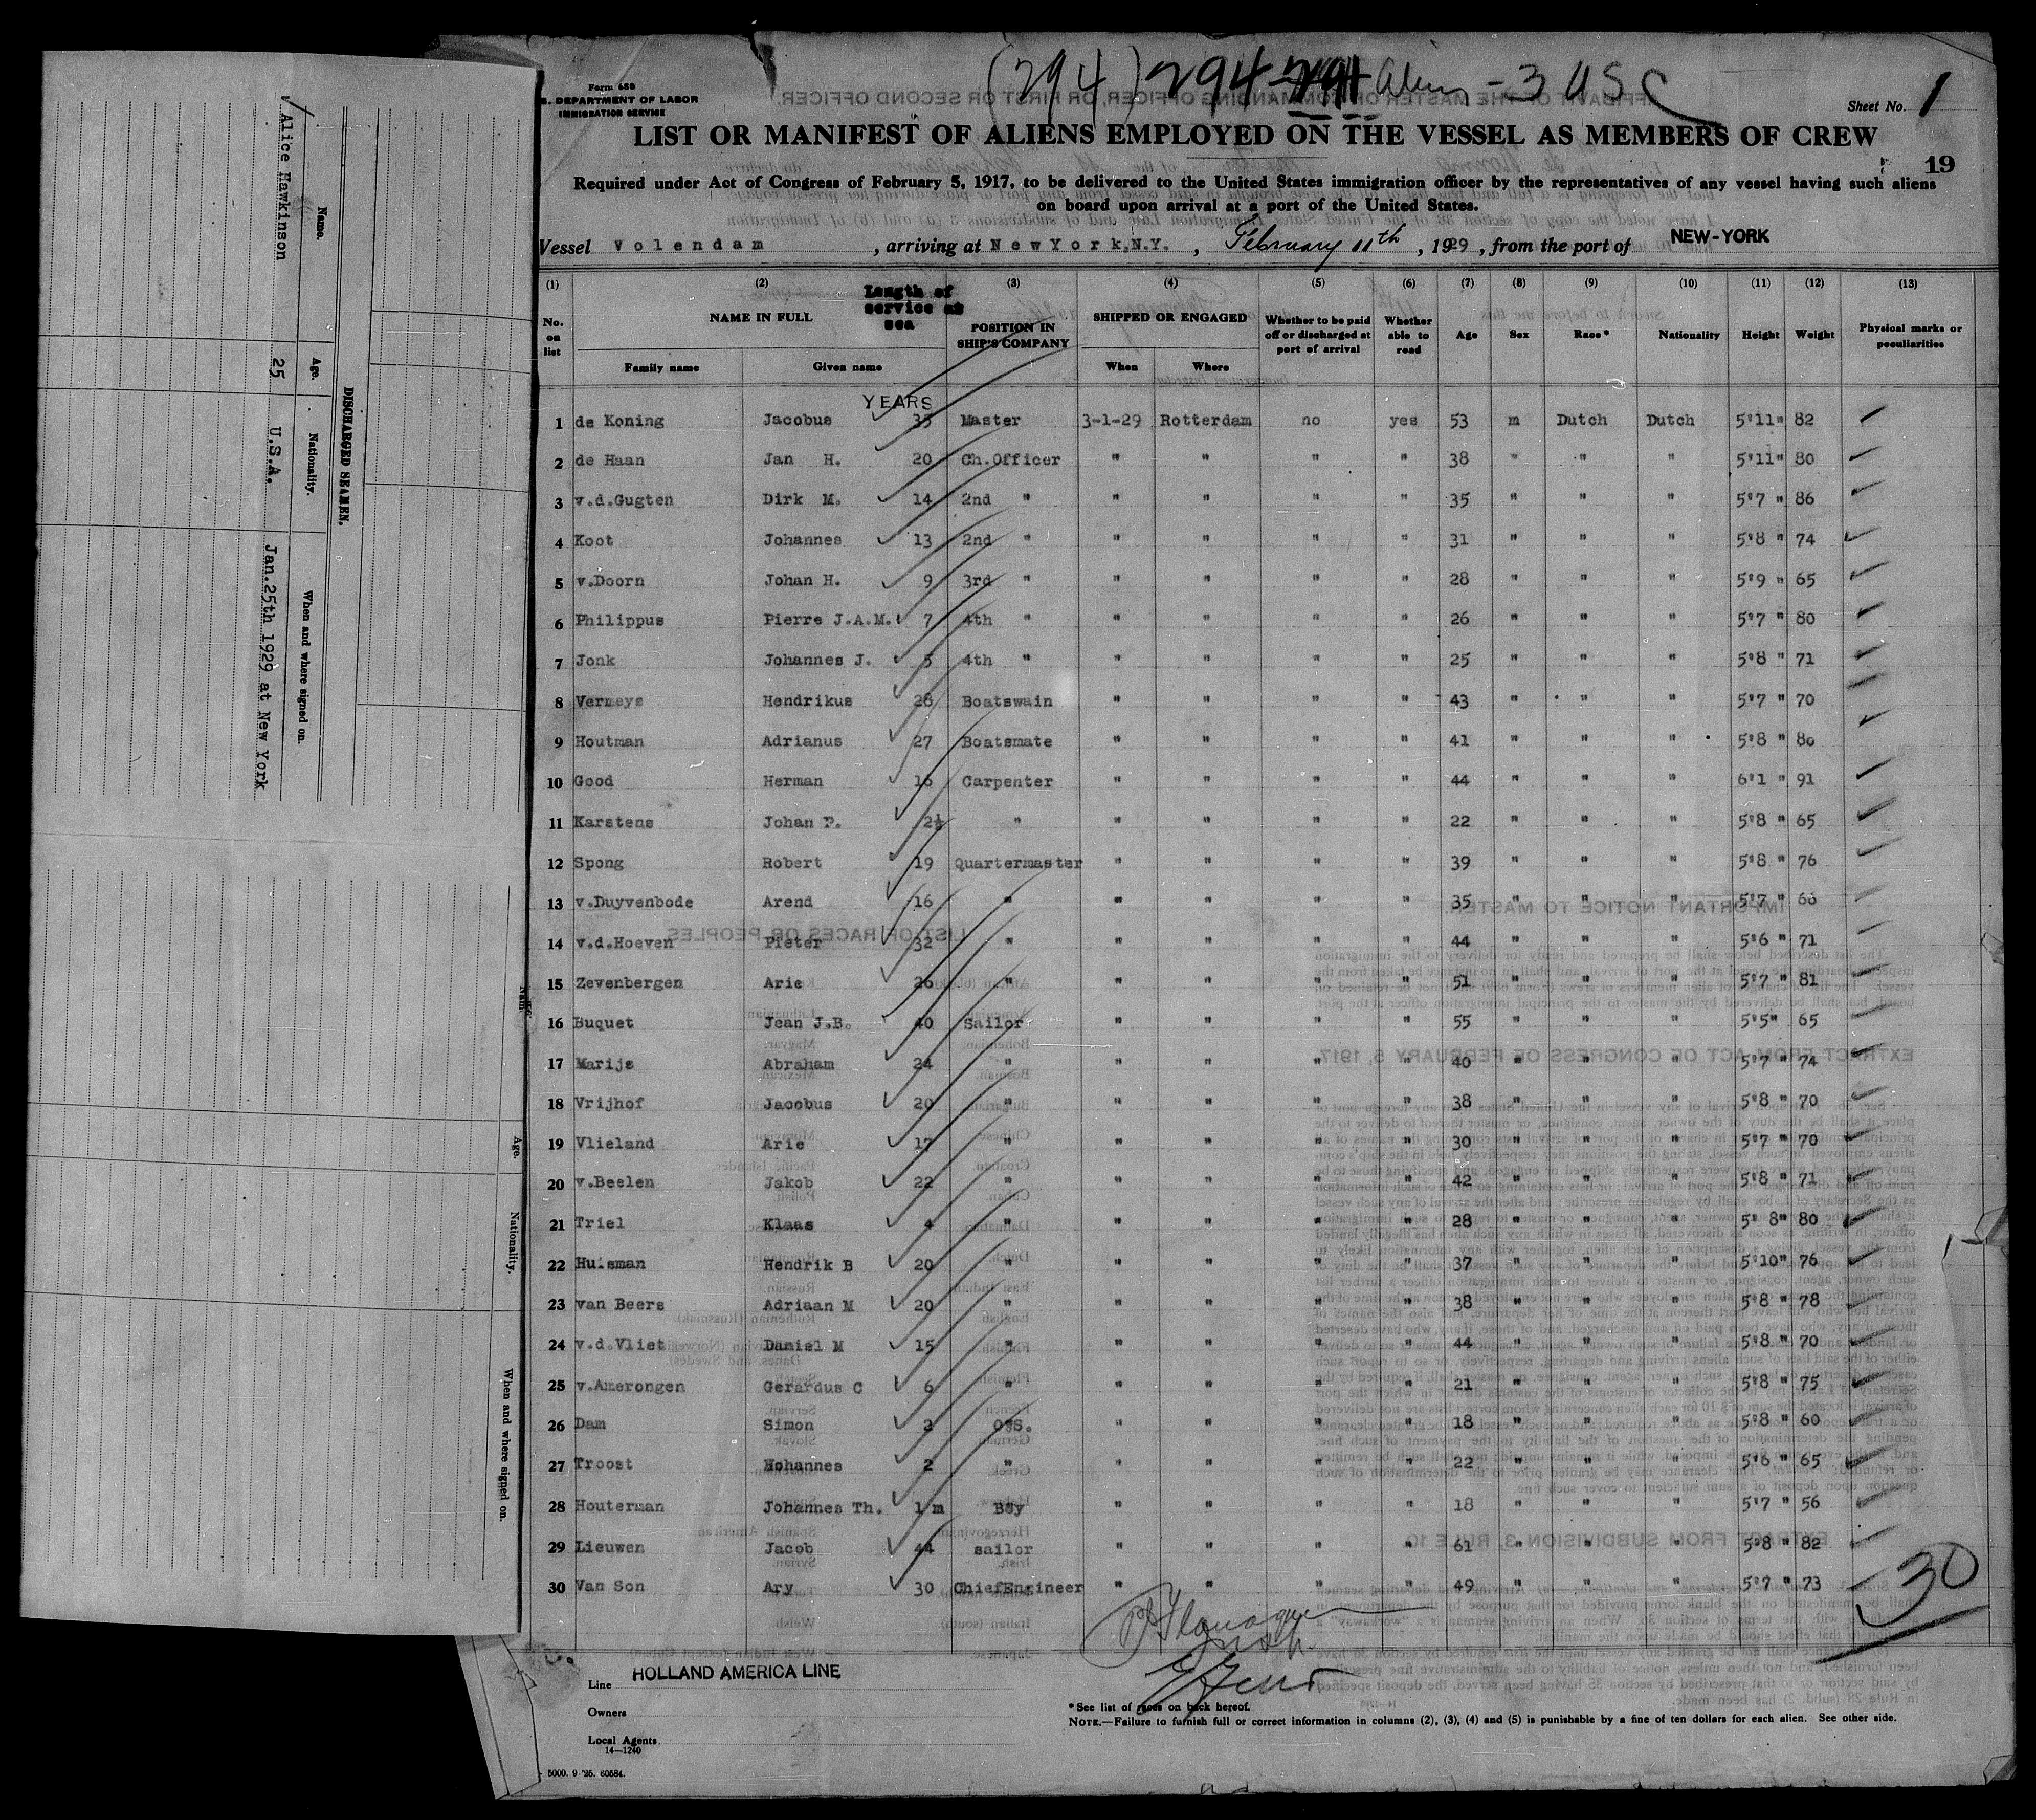 DISCHARGED SEAMEN.
Name. Age. Nationality. When and where signed on.
Alice Hawkinson 25 U.S.A. Jan.25th 1929 at New York
Age. Nationality. When and where signed on.
(294) 294 Aliens - 3 USC
Form 680
DEPARTMENT OF LABOR
IMMIGRATION SERVICE
Sheet No. 1
LIST OR MANIFEST OF ALIENS EMPLOYED ON THE VESSEL AS MEMBERS OF CREW
19
Required under Act of Congress of February 5, 1917, to be delivered to the United States immigration officer by the representatives of any vessel having such aliens
on board upon arrival at a port of the United States.
Vessel Volendam, arriving at New York, N.Y., February 11th, 1929, from the port of NEW-YORK
(1) (2) (3) (4) (5) (6) (7) (8) (9) (10) (11) (12) (13)
No. on list NAME IN FULL Length of service at sea POSITION IN SHIP'S COMPANY SHIPPED OR ENGAGED Whether to be paid off or discharged at port of arrival Whether able to read Age Sex Race* Nationality Height Weight Physical marks or peculiarities
Family name Given name When Where
YEARS
1 de Koning Jacobus 35 Master 3-1-29 Rotterdam no yes 53 m Dutch Dutch 5'11" 82
2 de Haan Jan H. 20 Ch.Officer " " " " 38 " " " 5'11" 80
3 v.d.Gugten Dirk M. 14 2nd " " " " " 35 " " " 5'7 " 86
4 Koot Johannes 13 2nd " " " " " 31 " " " 5'8 " 74
5 v.Doorn Johan H. 9 3rd " " " " " 28 " " " 5'9 " 65
6 Philippus Pierre J.A.M. 7 4th " " " " " 26 " " " 5'7 " 80
7 Jonk Johannes J. 5 4th " " " " " 25 " " " 5'8 " 71
8 Vermeys Hendrikus 28 Boatswain " " " " 43 " " " 5'7 " 70
9 Houtman Adrianus 27 Boatsmate " " " " 41 " " " 5'8 " 80
10 Good Herman 16 Carpenter " " " " 44 " " " 6'1 " 91
11 Karstens Johan P. 2½ " " " " " 22 " " " 5'8 " 65
12 Spong Robert 19 Quartermaster " " " " 39 " " " 5'8 " 76
13 v.Duyvenbode Arend 16 " " " " " 35 " " " 5'7 " 66
14 v.d.Hoeven Pieter 32 " " " " " 44 " " " 5'6 " 71
15 Zevenbergen Arie 26 " " " " " 51 " " " 5'7 " 81
16 Buquet Jean J.B. 40 Sailor " " " " 55 " " " 5'5" 65
17 Marijs Abraham 24 " " " " " 40 " " " 5'7 " 74
18 Vrijhof Jacobus 20 " " " " " 38 " " " 5'8 " 70
19 Vlieland Arie 17 " " " " " 30 " " " 5'7 " 70
20 v.Beelen Jakob 22 " " " " " 42 " " " 5'8 " 71
21 Triel Klaas 4 " " " " " 28 " " " 5' 8" 80
22 Huisman Hendrik B 20 " " " " " 37 " " " 5'10" 76
23 van Beers Adriaan M 20 " " " " " 38 " " " 5'8 " 78
24 v.d.Vliet Daniel M 15 " " " " " 44 " " " 5'8 " 70
25 v.Amerongen Gerardus C 6 " " " " " 21 " " " 5'8 " 75
26 Dam Simon 2 O.S. " " " " 18 " " " 5'8 " 60
27 Troost Nohannes 2 " " " " " 22 " " " 5'6 " 65
28 Houterman Johannes Th. 1 m Boy " " " " 18 " " " 5'7 " 56
29 Lieuwen Jacob 44 sailor " " " " 61 " " " 5'8 " 82
30 Van Son Ary 30 ChiefEngineer " " " " 49 " " " 5'7 " 73
30
Line HOLLAND AMERICA LINE
Owners
Local Agents
14—1240
*See list of races on back hereof.
NOTE.—Failure to furnish full or correct information in columns (2), (3), (4) and (5) is punishable by a fine of ten dollars for each alien. See other side.
5000. 9-'25. 60584.